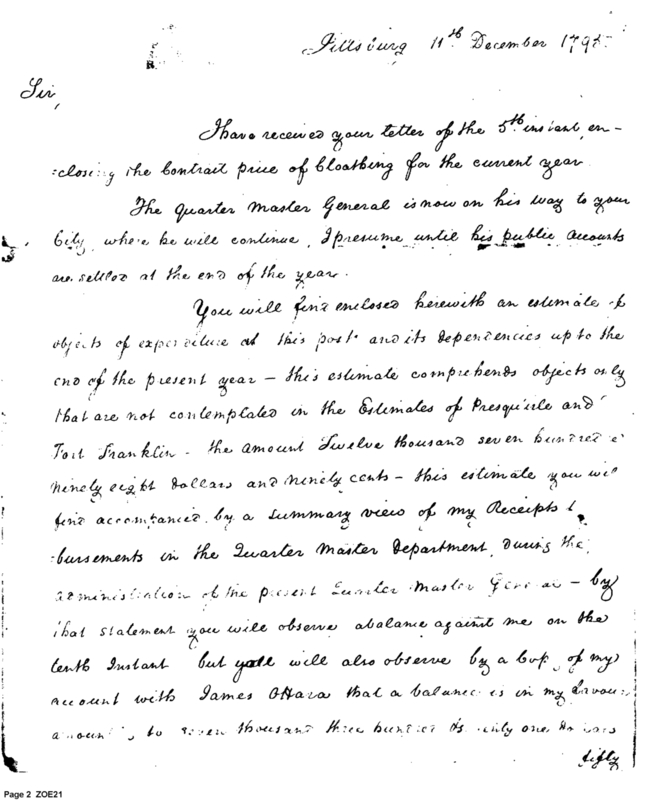 Pittsburg 11th December 1795
Sir,
I have received your letter of the 5th instant, en-
:closing the Contract price of Cloathing for the current year
The Quarter Master General is now on his way to your
City, where he will continue, I presume until his public accounts
are settled at the end of the year.
You will find enclosed herewith an estimate of
objects of expenditure at this post and its dependencies up to the
end of the present year - this estimate comprehends objects only
that are not contemplated in the Estimates of Presqu'isle and
Fort Franklin - the amount Twelve thousand seven hundred &
ninety eight Dollars and ninety cents - this estimate you will
find accompanied by a summary view of my Receipts &
:bursements in the Quarter Master Department, during the
administration of the present Quarter Master General - by
that statement you will observe a balance against me on the
tenth Instant but you will also observe by a Copy of my
account with James OHara that a balance is in my favour
amounting to thousand three hundred & one Dollars
fifty
Page 2 ZOE21